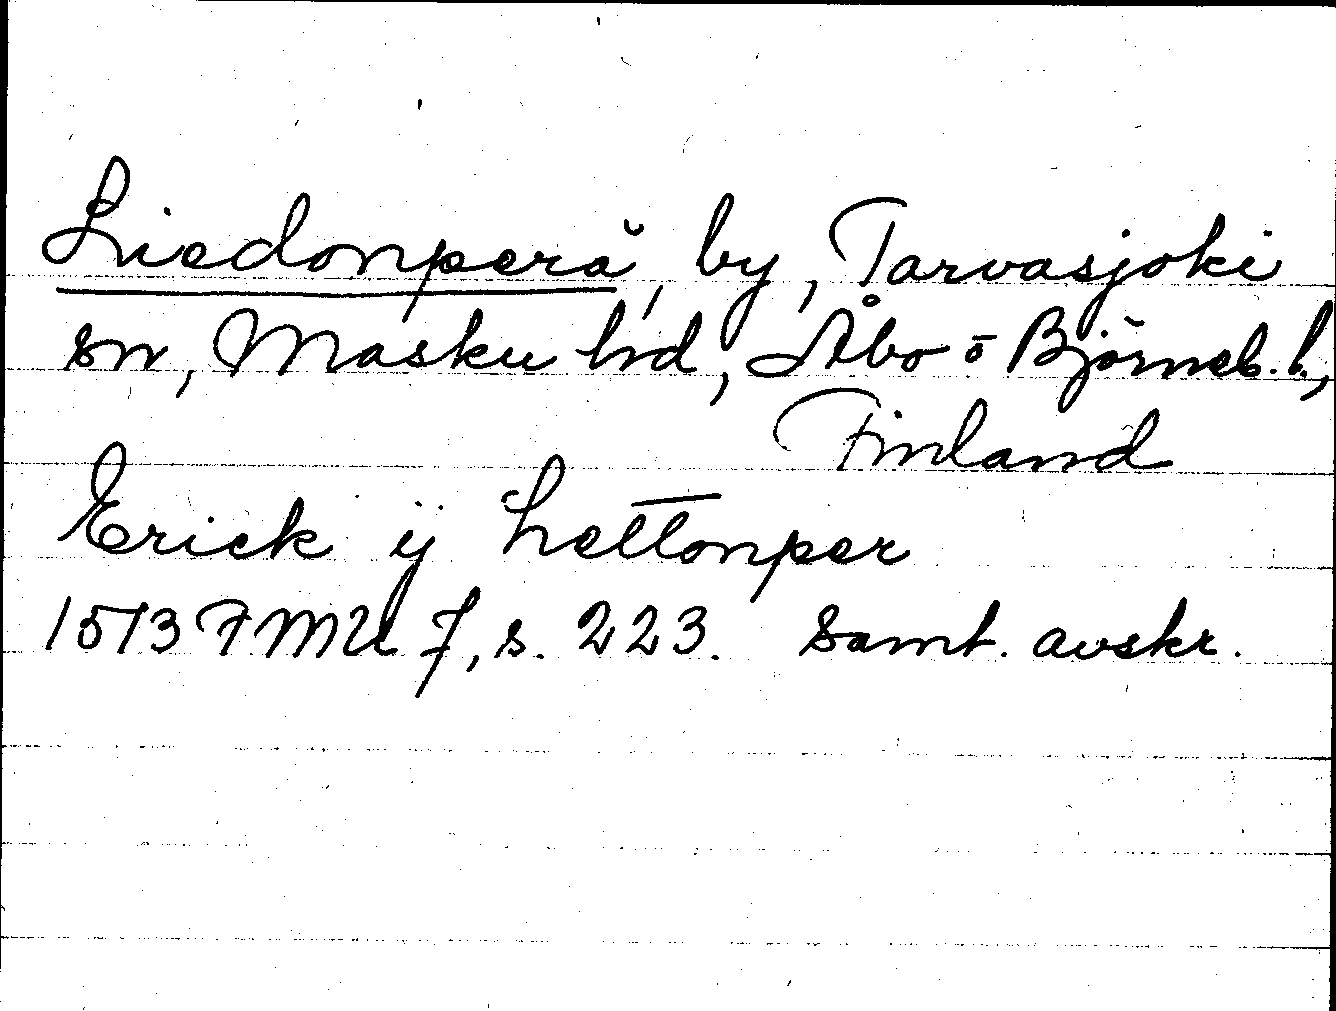 Liedonperä, by, Tarvasjoki
sn, Masku hd, Åbo o Björneb. l.,
Finland
Erick ij Lettonper
1513 FMU 7, s. 223. Samt. avskr.